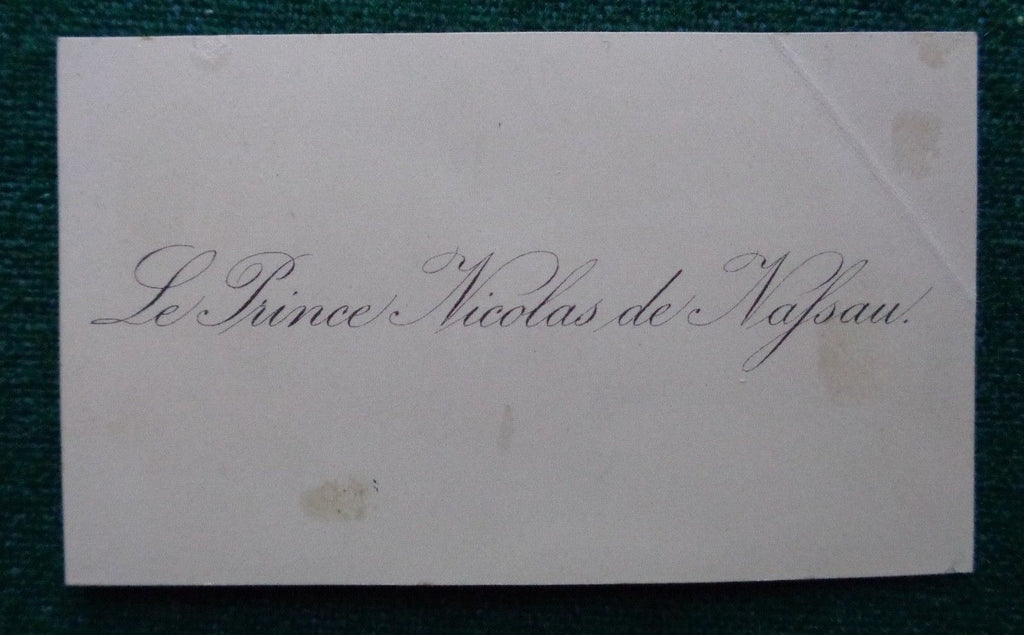 Le Prince Nicolas de Naſsau.